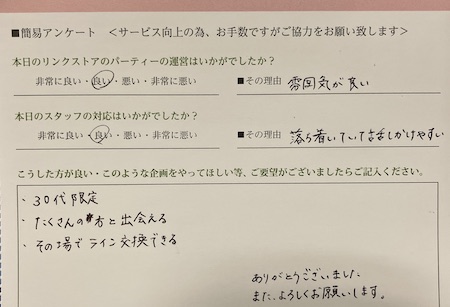 ■簡易アンケート ＜サービス向上の為、お手数ですがご協力をお願い致します＞
本日のリンクストアのパーティーの運営はいかがでしたか？
非常に良い・良い・悪い・非常に悪い ■その理由 雰囲気が良い
本日のスタッフの対応はいかがでしたか？
非常に良い・良い・悪い・非常に悪い ■その理由 落ち着いていて話しかけやすい
こうした方が良い・このような企画をやってほしい等、ご要望がございましたらご記入ください。
・30代限定
・たくさんの方と出会える
・その場でライン交換できる
ありがとうございました
また、よろしくお願いします。